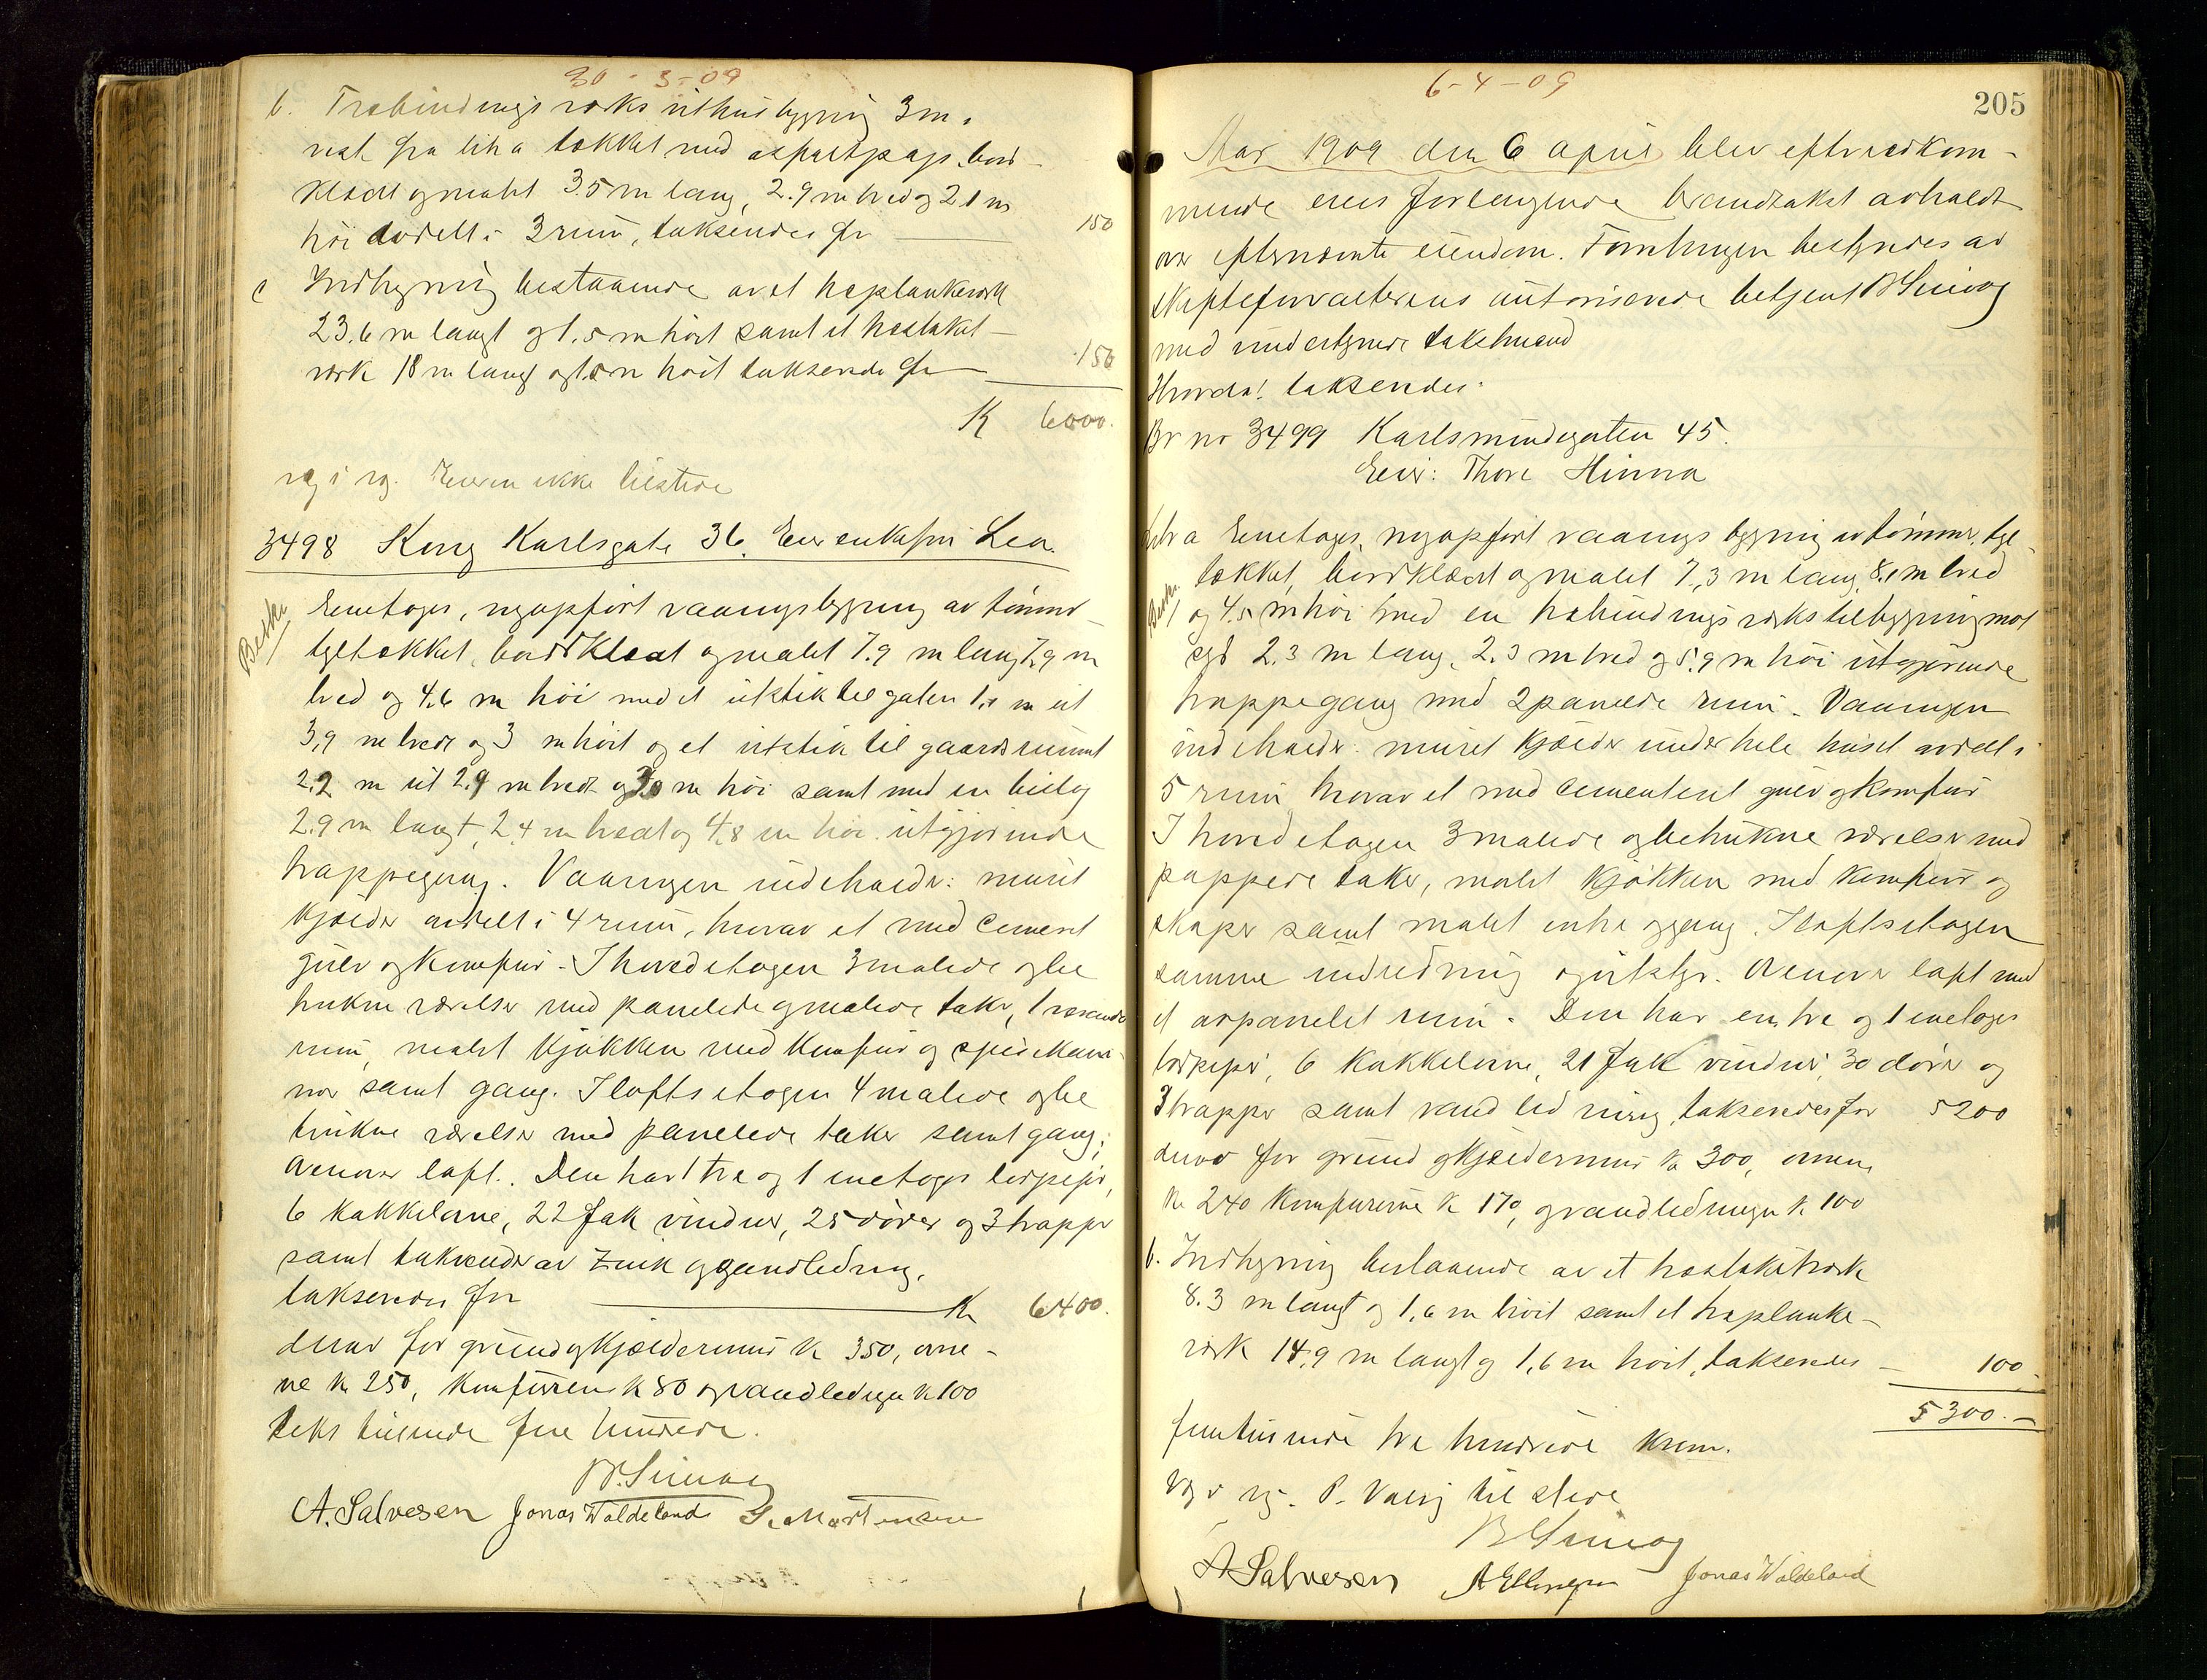 30-3-09
b. Træbindingsverks uthusbygning 3 m.
vest fra lit. a tækket med asphaltpap, bord-
klædt og malet 3.5 m lang, 2.9 m bred og 2.1 m
høi avdelt i 3 rum, takseredes for 150
c Indhegning bestaaende av et træplankeverk
23.6 m langt og 1.5 m høit samt et træstaket-
verk 18 m langt og 1.5 m høit takseredes for 150
K 6000.
Eieren ikke tilstede
3498 Kong Karlsgate 36. Eier enkefru Lea.
Besk.
Enetages, nyopført vaaningsbygning av tømmer
tegltækket, bordklædt og malet 7.9 m lang 7,9 m
bred og 4.6 m høi med et utstik til gaten 1.1 m ut
3,9 m bredt og 3 m høit og et utstik til gaardsrummet
2.2 m ut 2.9 m bredt og 3.0 m høi samt med en bislag
2.9 m langt, 2.4 m bredt og 4.8 m høi utgjørende
trappegang. Vaaningen indeholder: muret
kjælder avdelt i 4 rum, hvorav et med cement
gulv og komfur. I hovedetagen 3 malede og be
trukne værelser med panelede og malede taker, 1
rum, malet kjøkken med komfur og spiskam-
mer samt gang. I loftsetagen 4 malede og be
trukne værelser med panelede taker samt gang;
Ovenover loft. Den har 1 tre og 1 enetages torpiper,
6 kakkelovne, 22 fak vinduer, 25 dører og 3 trapper
samt takrender av zink og vandledning,
takseredes for K 6400.
derav for grund og kjældermur k 350, ovne-
ne k 250, komfuren k 80 og vandledningen k 100
seks tusinde fire hundrede.
B. Simony
A. Salvesen Jonas Waldeland G. Mortensen
6-4-09
205
Aar 1909 den 6 april blev efter vedkom-
mende eiers forlangende brandtakst avholdt
over efternævnte eiendom. Forretningen bestyredes av
skifteforvalterens autoriserede betjent B Simony
med undertegnede takstmænd
Hvorda! takseredes:
Br no 3499 Karlsmindegaten 45.
Eier: Thore Hinna
Besk.
Litra Enetages, nyopført vaanings bygning av tømmer, tegl-
tækket, bordklædt og malet 7,3 m lang, 8.1 m bred
og 4.5 m høi med en træbindingsverks tilbygning mot
syd 2.3 m lang, 2.3 m bred og 5.9 m høi utgjørende
trappegang med 2 panelede rum. Vaaningen
indeholder: muret kjælder under hele huset avdelt i
5 rum hvorav et med cementeret gulv og komfur
I hovedetagen 3 malede og betrukne værelser med
pappede taker, malet kjøkken med komfur og
skaper samt malet entre og gang. I loftsetagen
samme indredning og utstyr. Ovenover loft med
et avpanelet rum. Den har en tre og 1 enetages
torpiper, 6 kakkelovne, 21 fak vinduer, 30 dører og
3 trapper samt vandledning, takseredes for 5200
derav for grund og kjældermur k 300, ovnene
k 240 komfurerne k 170, og vandledningen k 100
b. Indhegning bestaaende av et træstaketverk
8.3 m langt og 1,6 m høit samt et træplanke-
verk 14.9 m langt og 1,6 m høit, takseredes - 100.
5300.-
femtusinde tre hundrede kron.
P. Valvig til stede
B Simony
A Salvesen A Ellingsen Jonas Waldeland